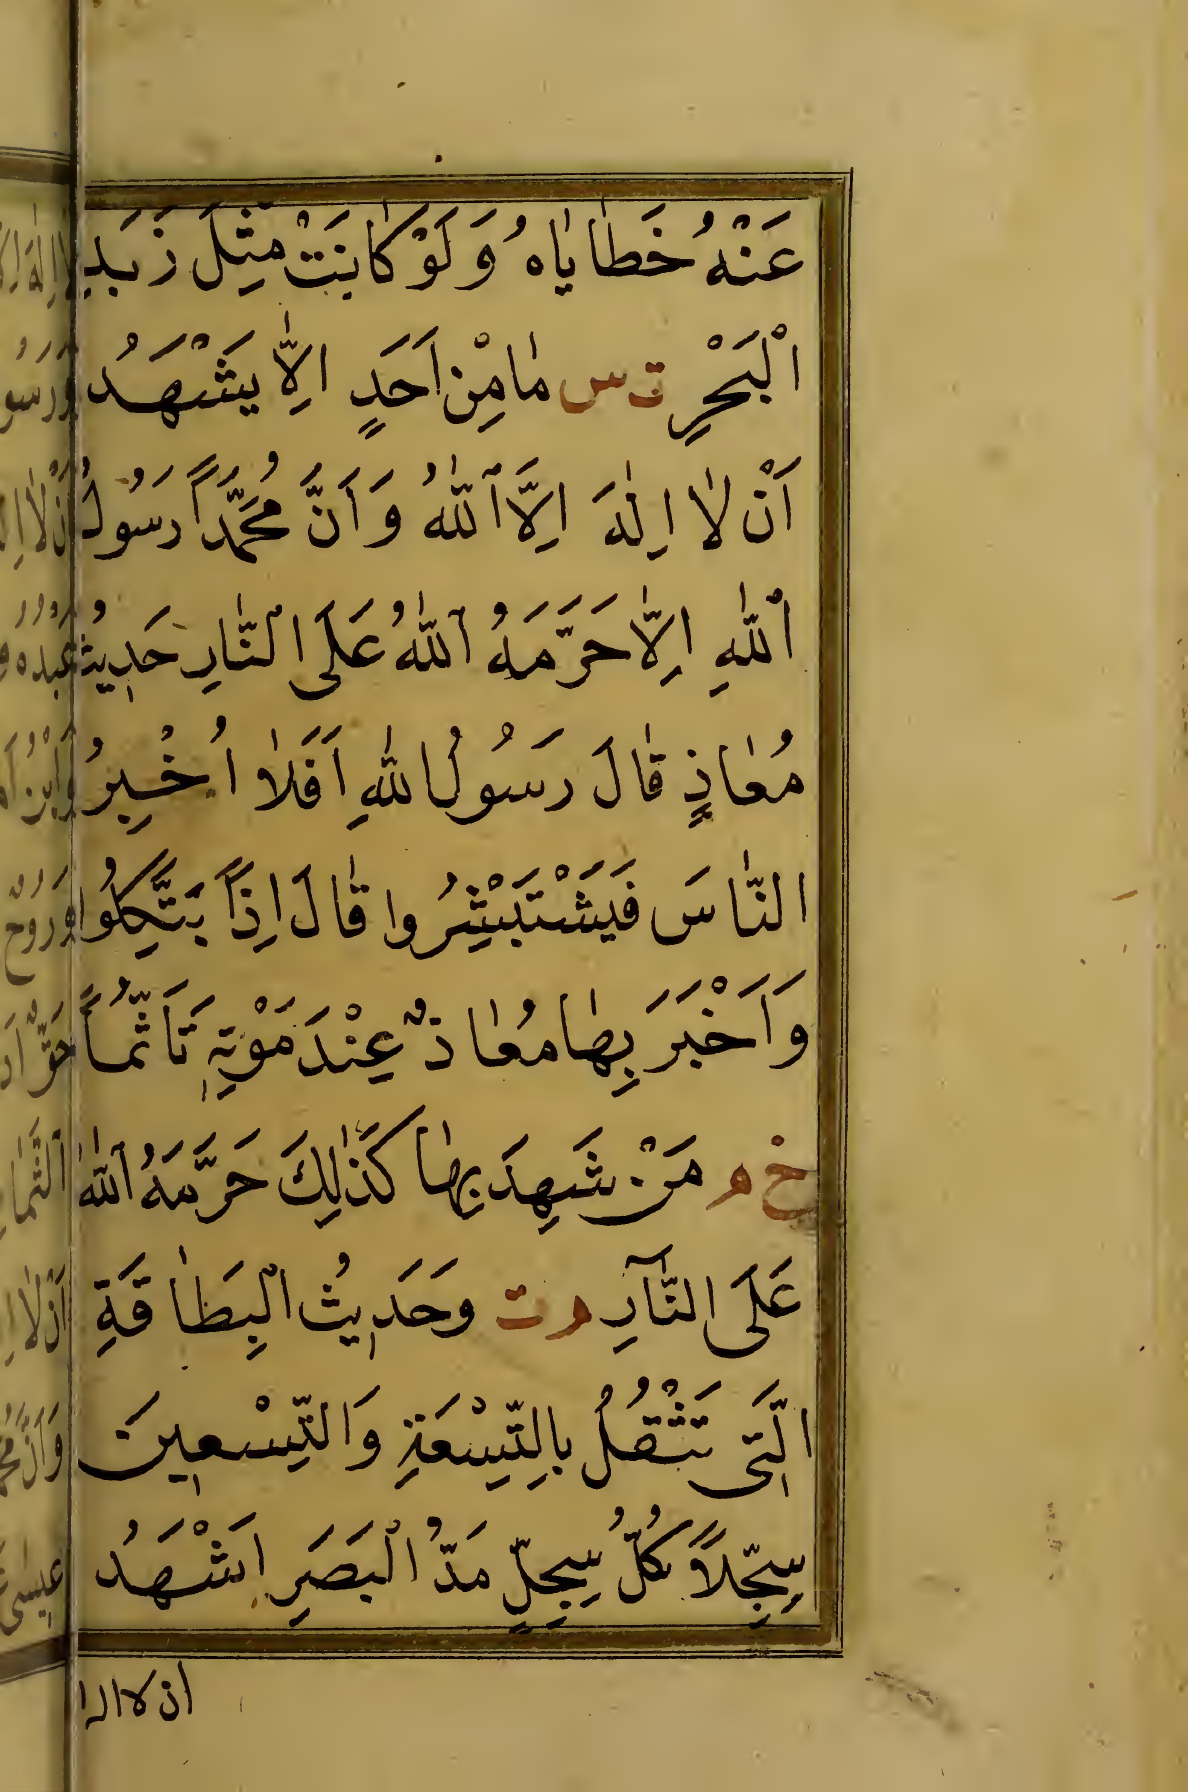 عَنْهُ خَطَايَاهُ وَلَوْ كَانَتْ مِثْلَ زَبَدِ
الْبَحْرِ ت س مَا مِنْ اَحَدٍ اِلَّا يَشْهَدُ
اَنْ لَا اِلٰهَ اِلَّا اللّٰهُ وَاَنَّ مُحَمَّداً رَسُولُ
اللّٰهِ اِلَّا حَرَّمَهُ اللّٰهُ عَلَى النَّارِ حَدِيثُ
مُعَاذٍ قَالَ رَسُولُ اللّٰهِ اَفَلَا اُخْبِرُ
النَّاسَ فَيَسْتَبْشِرُوا قَالَ اِذاً يَتَّكِلُوا
وَاَخْبَرَ بِهَا مُعَاذٌ عِنْدَ مَوْتِهِ تَاَثُّماً
خ م مَنْ شَهِدَ بِهَا كَذٰلِكَ حَرَّمَهُ اللّٰهُ
عَلَى النَّارِ م ت وَحَدِيثُ الْبِطَاقَةِ
الَّتِى تَثْقُلُ بِالتِّسْعَةِ وَالتِّسْعِينَ
سِجِّلاًّ كُلُّ سِجِلٍّ مَدُّ الْبَصَرِ اَشْهَدُ
ان لا اله